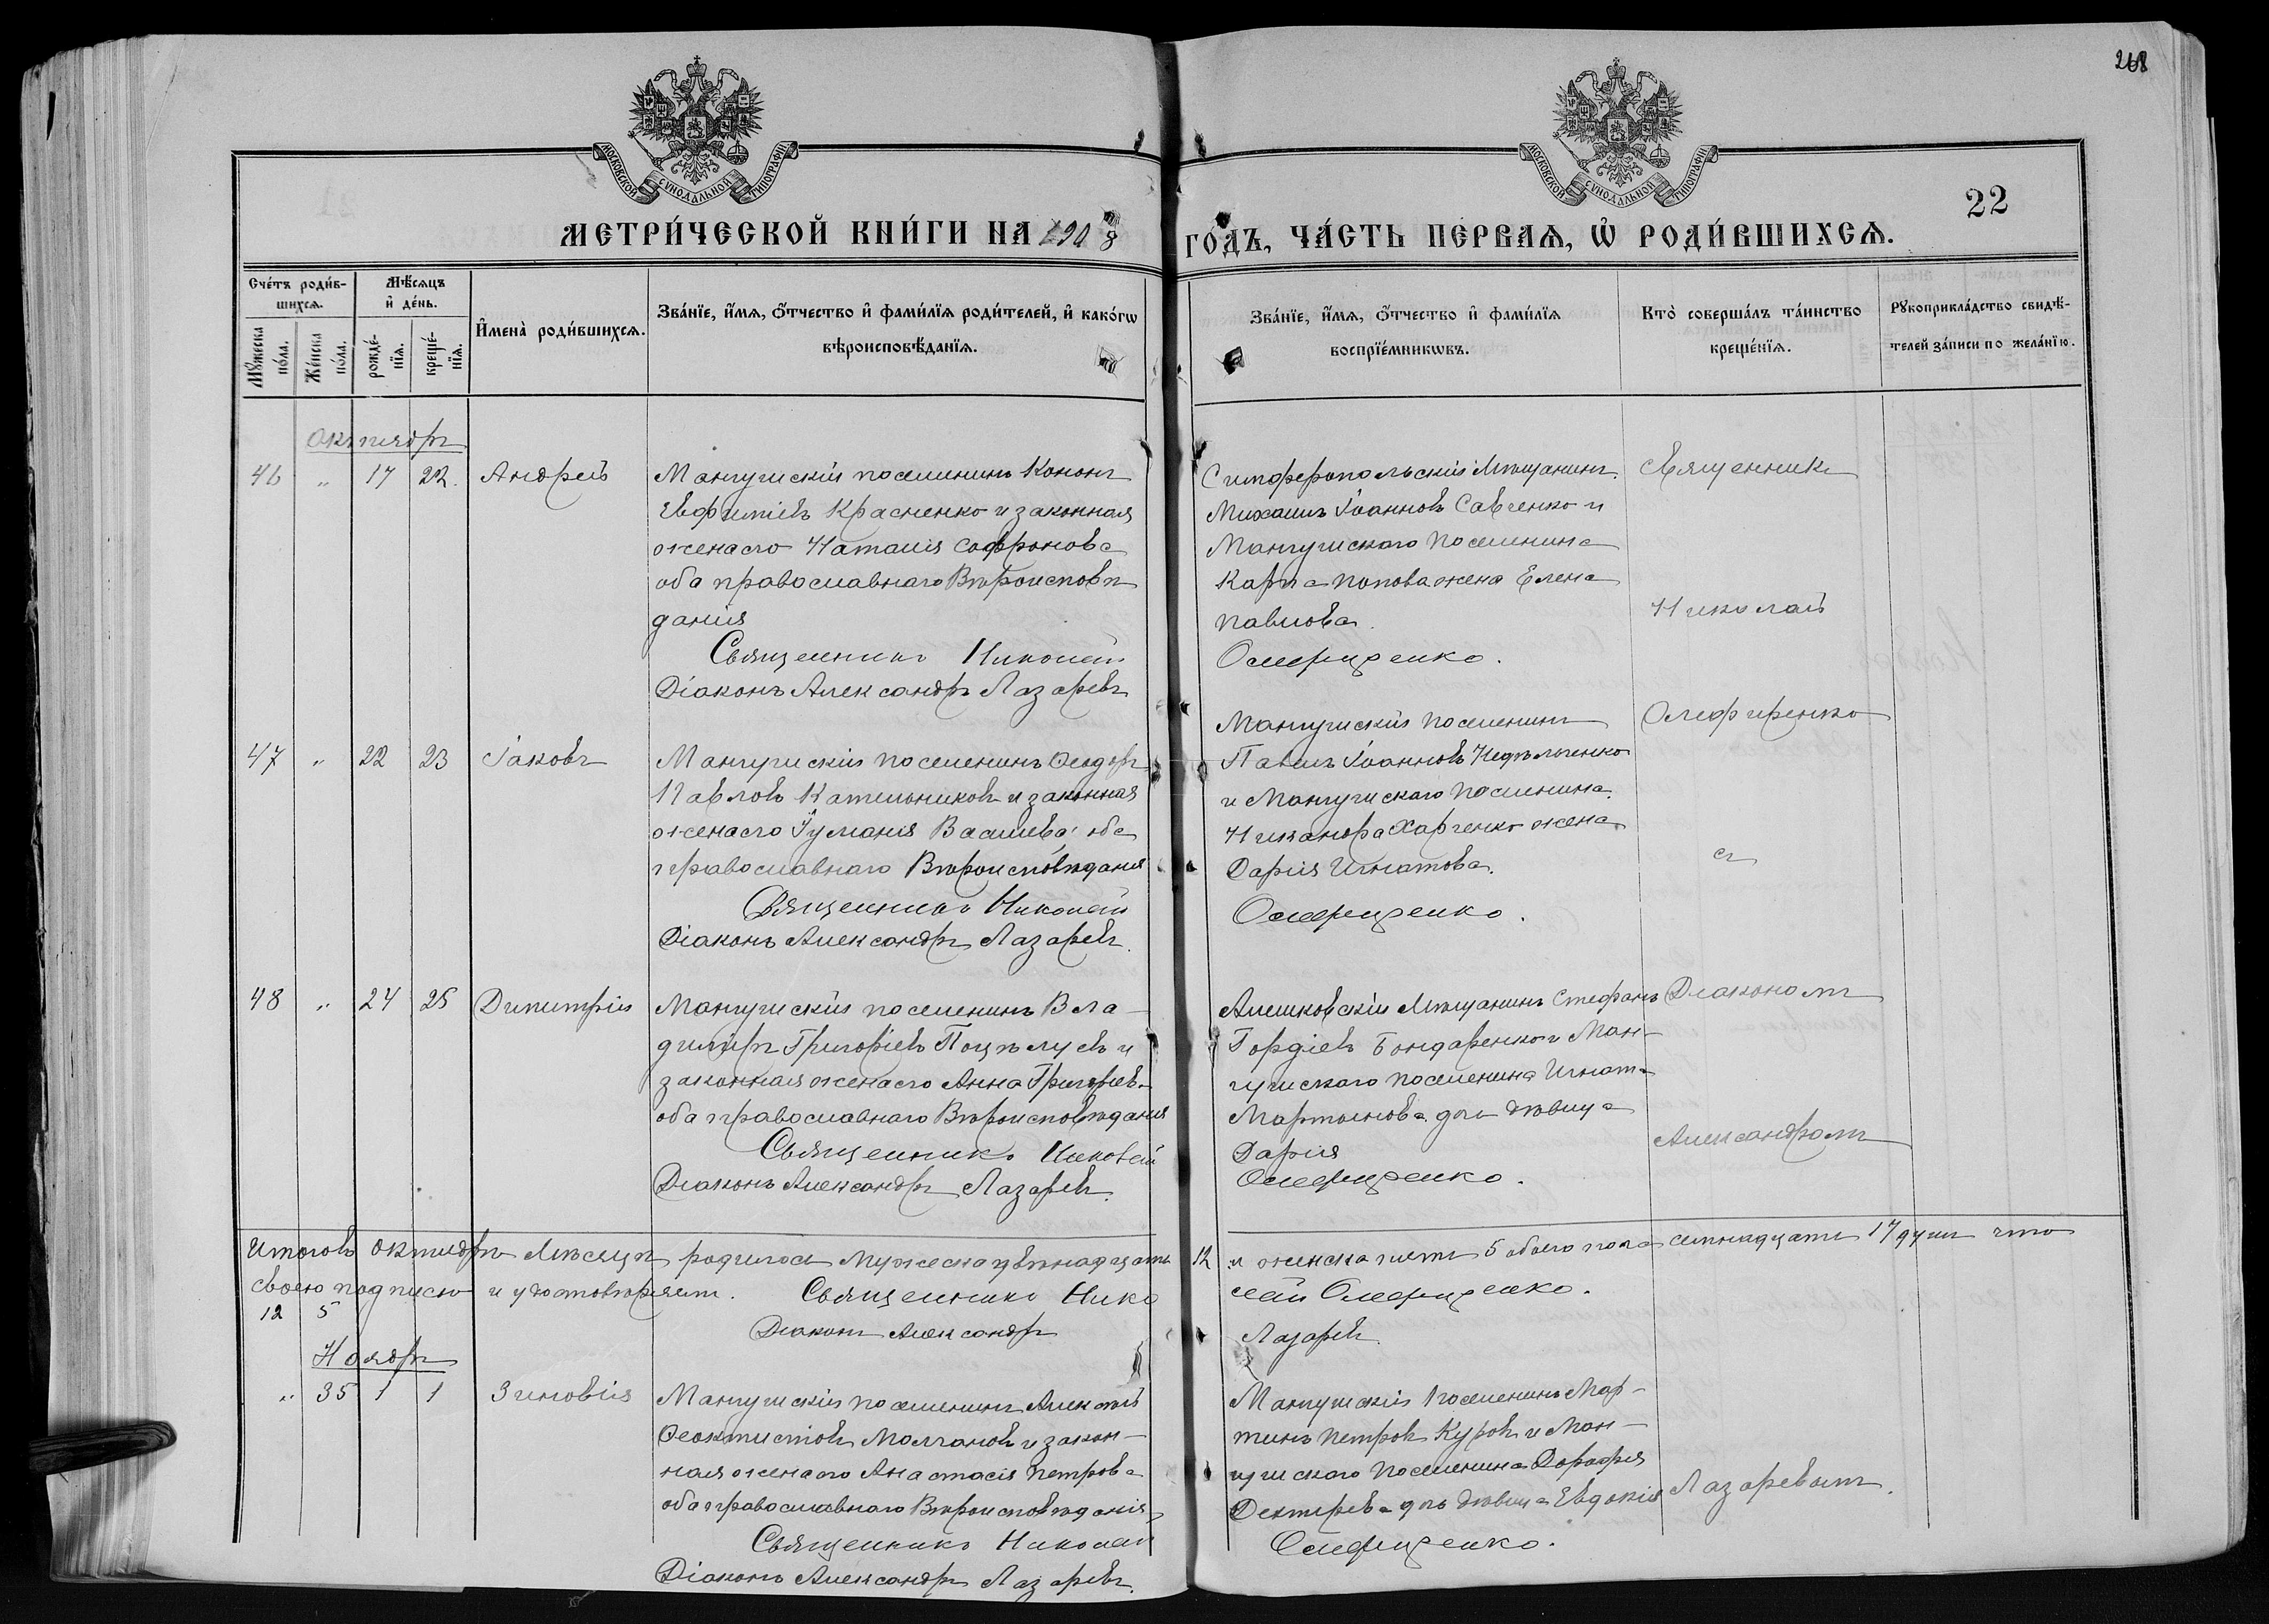 268
МОСКОВСКОЙ СѴНОДАЛЬНОЙ ТИПОГРАФІИ
МОСКОВСКОЙ СѴНОДАЛЬНОЙ ТИПОГРАФІИ
22
МЕТРИ́ЧЕСКОЙ КНИ́ГИ НА 1908
ГО́ДЪ, ЧА́СТЬ ПЕ́РВАѦ, Ѡ҆ РОДИ́ВШИХСѦ.
Сче́тъ роди́в-
шихсѧ.
Мꙋ́жеска по́ла.
Же́нска по́ла.
Мѣ́сѧцъ
и҆ де́нь.
рожде́-
нїѧ.
креще́-
нїѧ.
И҆мена̀ роди́вшихсѧ.
Зва́нїе, и҆́мѧ, ѻ҆́тчество и҆ фами́лїѧ роди́телей, и҆ како́гѡ
вѣроисповѣ́данїѧ.
Зва́нїе, и҆́мѧ, ѻ҆́тчество и҆ фами́лїѧ
воспрїе́мникѡвъ.
Кто̀ соверша́лъ та́инство
креще́нїѧ.
Рꙋкоприкла́дство свидѣ́-
телей за́писи по жела́нїю.
Октябрь
46 " 17 22. Андрей
Мангушскій поселянинъ Кононъ
Евфиміевъ Красненко и законная
жена его Наталія Софронова
оба православнаго Вѣроисповѣ
данія
Священникъ Николай
Діаконъ Александръ Лазаревъ
Симферопольскій Мѣщанинъ
Михаилъ Іоанновъ Савченко и
Мангушскаго поселянина
Карпа Попова жена Елена
Павлова.
Олефиренко.
Священникъ
Николай
Олефиренко
47 " 22 23 Іаковъ
Мангушскій поселянинъ Ѳеодоръ
Павловъ Кательниковъ и законная
жена его Іуліанія Васильева оба
православнаго Вѣроисповѣданія
Священникъ Николай
Діаконъ Александръ Лазаревъ.
Мангушскій поселянинъ
Павелъ Іоанновъ
и Мангушскаго поселянина
Никанора Харченко жена
Дарія Игнатова.
Олефиренко.
съ
48 " 24 25 Димитрій
Мангушскій поселянинъ Вла-
диміръ Григоріевъ Поцѣлуевъ и
законная жена его Анна Григорьева
оба православнаго Вѣроисповѣданія
Священникъ Николай
Діаконъ Александръ Лазаревъ.
Алешковскій Мѣщанинъ Стефанъ
Гордіевъ Бондаренко и Ман-
гушскаго поселянина Игната
Мартынова дочь дѣвица
Дарія
Олефиренко.
Діакономъ
Александромъ
Итого въ Октябрѣ Мѣсяцѣ родилось Мужеска двѣнадцать 12 и женска пять 5 обоего пола семнадцать 17 душъ что
своею подписью и удостовѣряемъ. Священникъ Николай Олефиренко.
12 5
Діаконъ Александръ Лазаревъ.
Ноябрь
" 35 1 1 Зиновія
Мангушскій поселянинъ Алексѣй
Ѳеоктистовъ Молчановъ и закон-
ная жена его Анастасія Петрова
оба православнаго Вѣроисповѣданія
Священникъ Николай
Діаконъ Александръ Лазаревъ.
Мангушскій поселянинъ Мар-
тинъ Петровъ Куровъ и Ман-
гушскаго поселянина Дорофея
Дектерева дочь дѣвица Евдокія
Олефиренко.
Лазаревымъ.